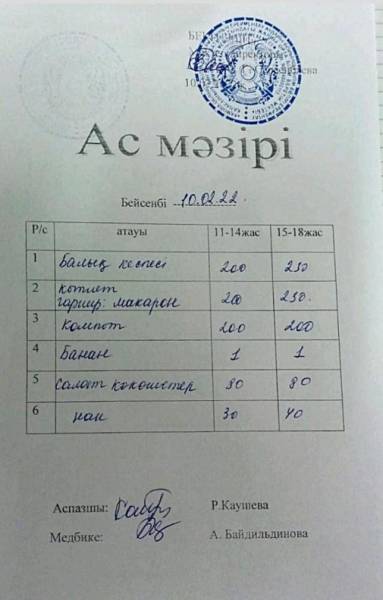 Ас мәзірі
Бейсенбі 10.02.22.
Р/с атауы 11-14жас 15-18жас
1 Балық кеспесі 200 250
2 котлет
гарнир: макарон 200 250.
3 Компот 200 200
4 Банан 1 1
5 Салат көкөністер 90 90
6 нан 30 40
Аспазшы: Р.Каушева
Медбике: А. Байдильдинова